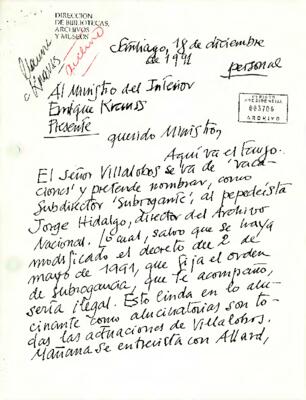 DIRECCION
DE BIBLIOTECAS,
ARCHIVOS
Y MUSEOS
Santiago, 18 de diciembre
de 1991
personal
archivo
Al Ministro del Interior
Enrique Krauss
Presente
PERIODO
PRESIDENCIAL
003706
ARCHIVO
querido Ministro,
Aquí va el fuego.
El señor Villalobos se va de 'vaca-
ciones' y pretende nombrar, como
Subdirector 'Subrogante', al pepedeista
Jorge Hidalgo, director del Archivo
Nacional. Lo cual, salvo que se haya
modificado el decreto del 2 de
mayo de 1991, que fija el orden
de subrogancia, que te acompaño,
sería ilegal. Esto linda en lo alu-
cinante como alucinatorias son to-
das las actuaciones de Villalobos.
Mañana se entrevista con Allard,